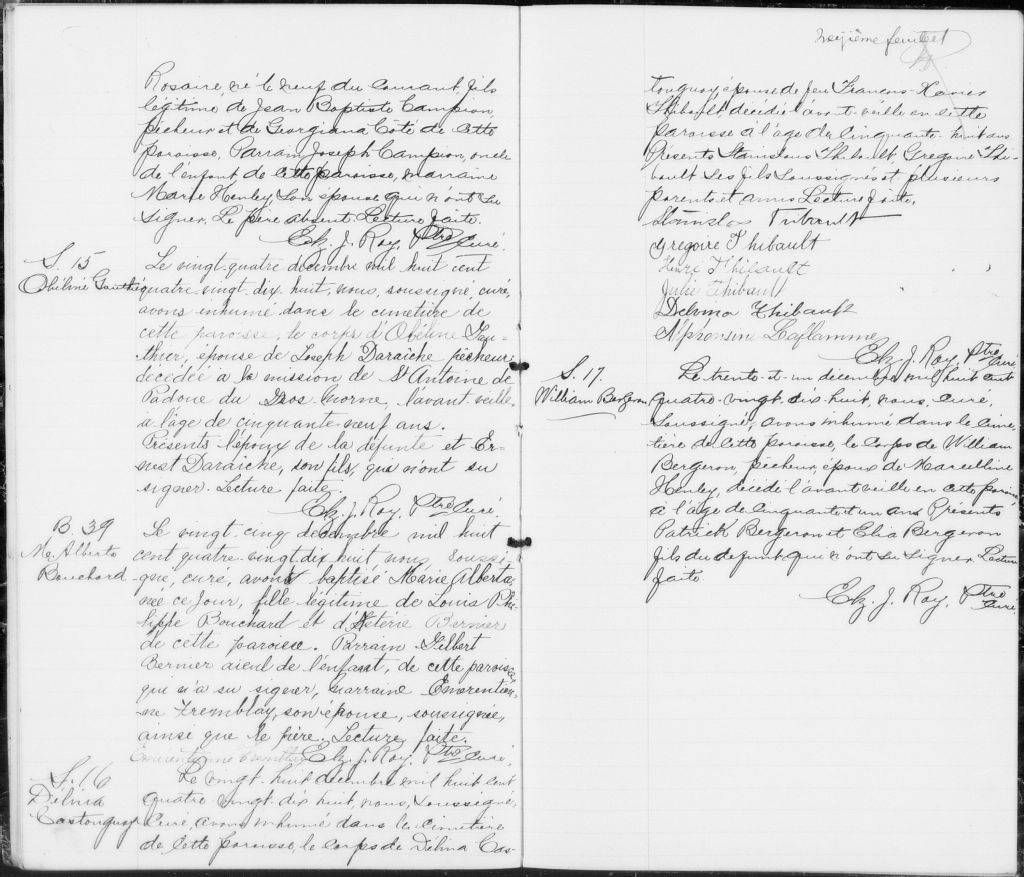 Rosaire, né le neuf du courant, fils
légitime de Jean Baptiste Campion,
pêcheur et de Georgiana Côté de cette
paroisse. Parrain Joseph Campion, oncle
de l'enfant de cette paroisse, marraine
Marie Henley, son épouse qui n'ont su
signer. Le père absent. Lecture faite.
Elz. J. Roy, Ptre Curé.
S. 15
Obéline Gauthier
Le vingt-quatre décembre mil huit cent
quatre-vingt-dix-huit, nous, soussigné, curé,
avons inhumé dans le cimetière de
cette paroisse, le corps d'Obéline Gau-
thier, épouse de Joseph Daraîche pêcheur,
décédée à la mission de St Antoine de
Padoue du Gros Morne, l'avant-veille,
à l'âge de cinquante-neuf ans.
Présents l'époux de la défunte et Er-
nest Daraîche, son fils, qui n'ont su
signer. Lecture faite.
Elz. J. Roy, Ptre Curé.
B. 39
Me. Alberta
Bouchard
Le vingt-cinq décembre mil huit
cent quatre-vingt-dix-huit nous, soussi-
gné, curé, avons baptisé Marie Alberta,
née ce jour, fille légitime de Louis Phi-
lippe Bouchard et d'Astérie Bernier
de cette paroisse. Parrain Gilbert
Bernier aïeul de l'enfant, de cette paroisse,
qui n'a su signer, marraine Emérentien-
ne Tremblay, son épouse, soussignée,
ainsi que le père. Lecture faite.
Emérentienne Tremblay Elz. J. Roy, Ptre Curé.
S. 16
Délima
Castonguay
Le vingt-huit décembre mil huit cent
quatre-vingt-dix-huit, nous, soussigné,
curé, avons inhumé dans le cimetière
de cette paroisse, le corps de Délima Cas-
treizième feuillet
tonguay, épouse de feu François-Xavier
Thibault, décédée l'avant-veille en cette
paroisse à l'âge de cinquante-huit ans.
Présents Stanislas Thibault, Grégoire Thi-
bault ses fils soussignés et plusieurs
parents et amis. Lecture faite.
Stanislas Thibault
Gregoire Thibault
Henri Thibault
Julie Thibault
Delima Thibault
Alphonsine Laflamme
Elz. J. Roy, Ptre Curé.
S. 17.
William Bergeron
Le trente-et-un décembre mil huit cent
quatre-vingt-dix-huit, nous, curé,
soussigné, avons inhumé dans le cime-
tière de cette paroisse, le corps de William
Bergeron, pêcheur, époux de Marcelline
Henley, décédé l'avant-veille en cette paroisse
à l'âge de cinquante et un ans. Présents
Patrick Bergeron et Elia Bergeron
fils du défunt qui n'ont su signer. Lecture
faite
Elz. J. Roy, Ptre Curé.